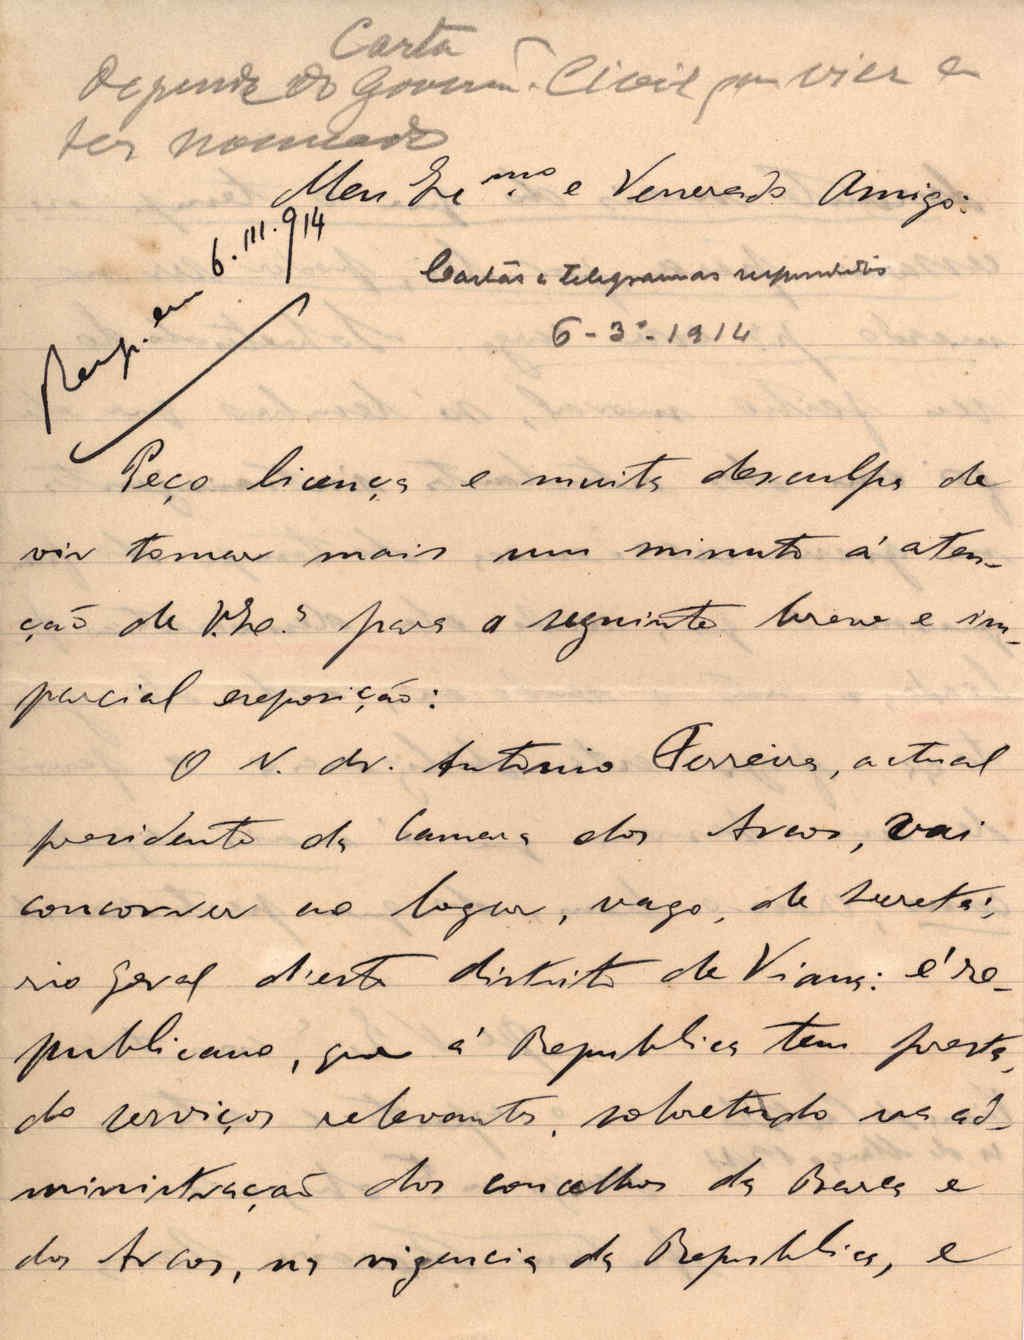 Carta
Depende do Govern. Civil quem vier a
ser nomeado
Meu Ex.mo e Venerado Amigo:
Resp. em 6.III.914
Cartas e telegramas respondidos
6-3º-1914
Peço licença e muita desculpa de
vir tomar mais um minuto á aten-
ção de V. Ex.ª para a seguinte breve e im-
parcial exposição:
O N. dr. Antonio Ferreira, actual
presidente da Camara dos Arcos, vai
concorrer ao logar, vago, de secretá-
rio geral d'este distrito de Viana: é re-
publicano, que á Republica tem presta-
do serviços relevantes, sobretudo na ad-
ministração dos concelhos da Barca e
dos Arcos, na vigencia da Republica, e